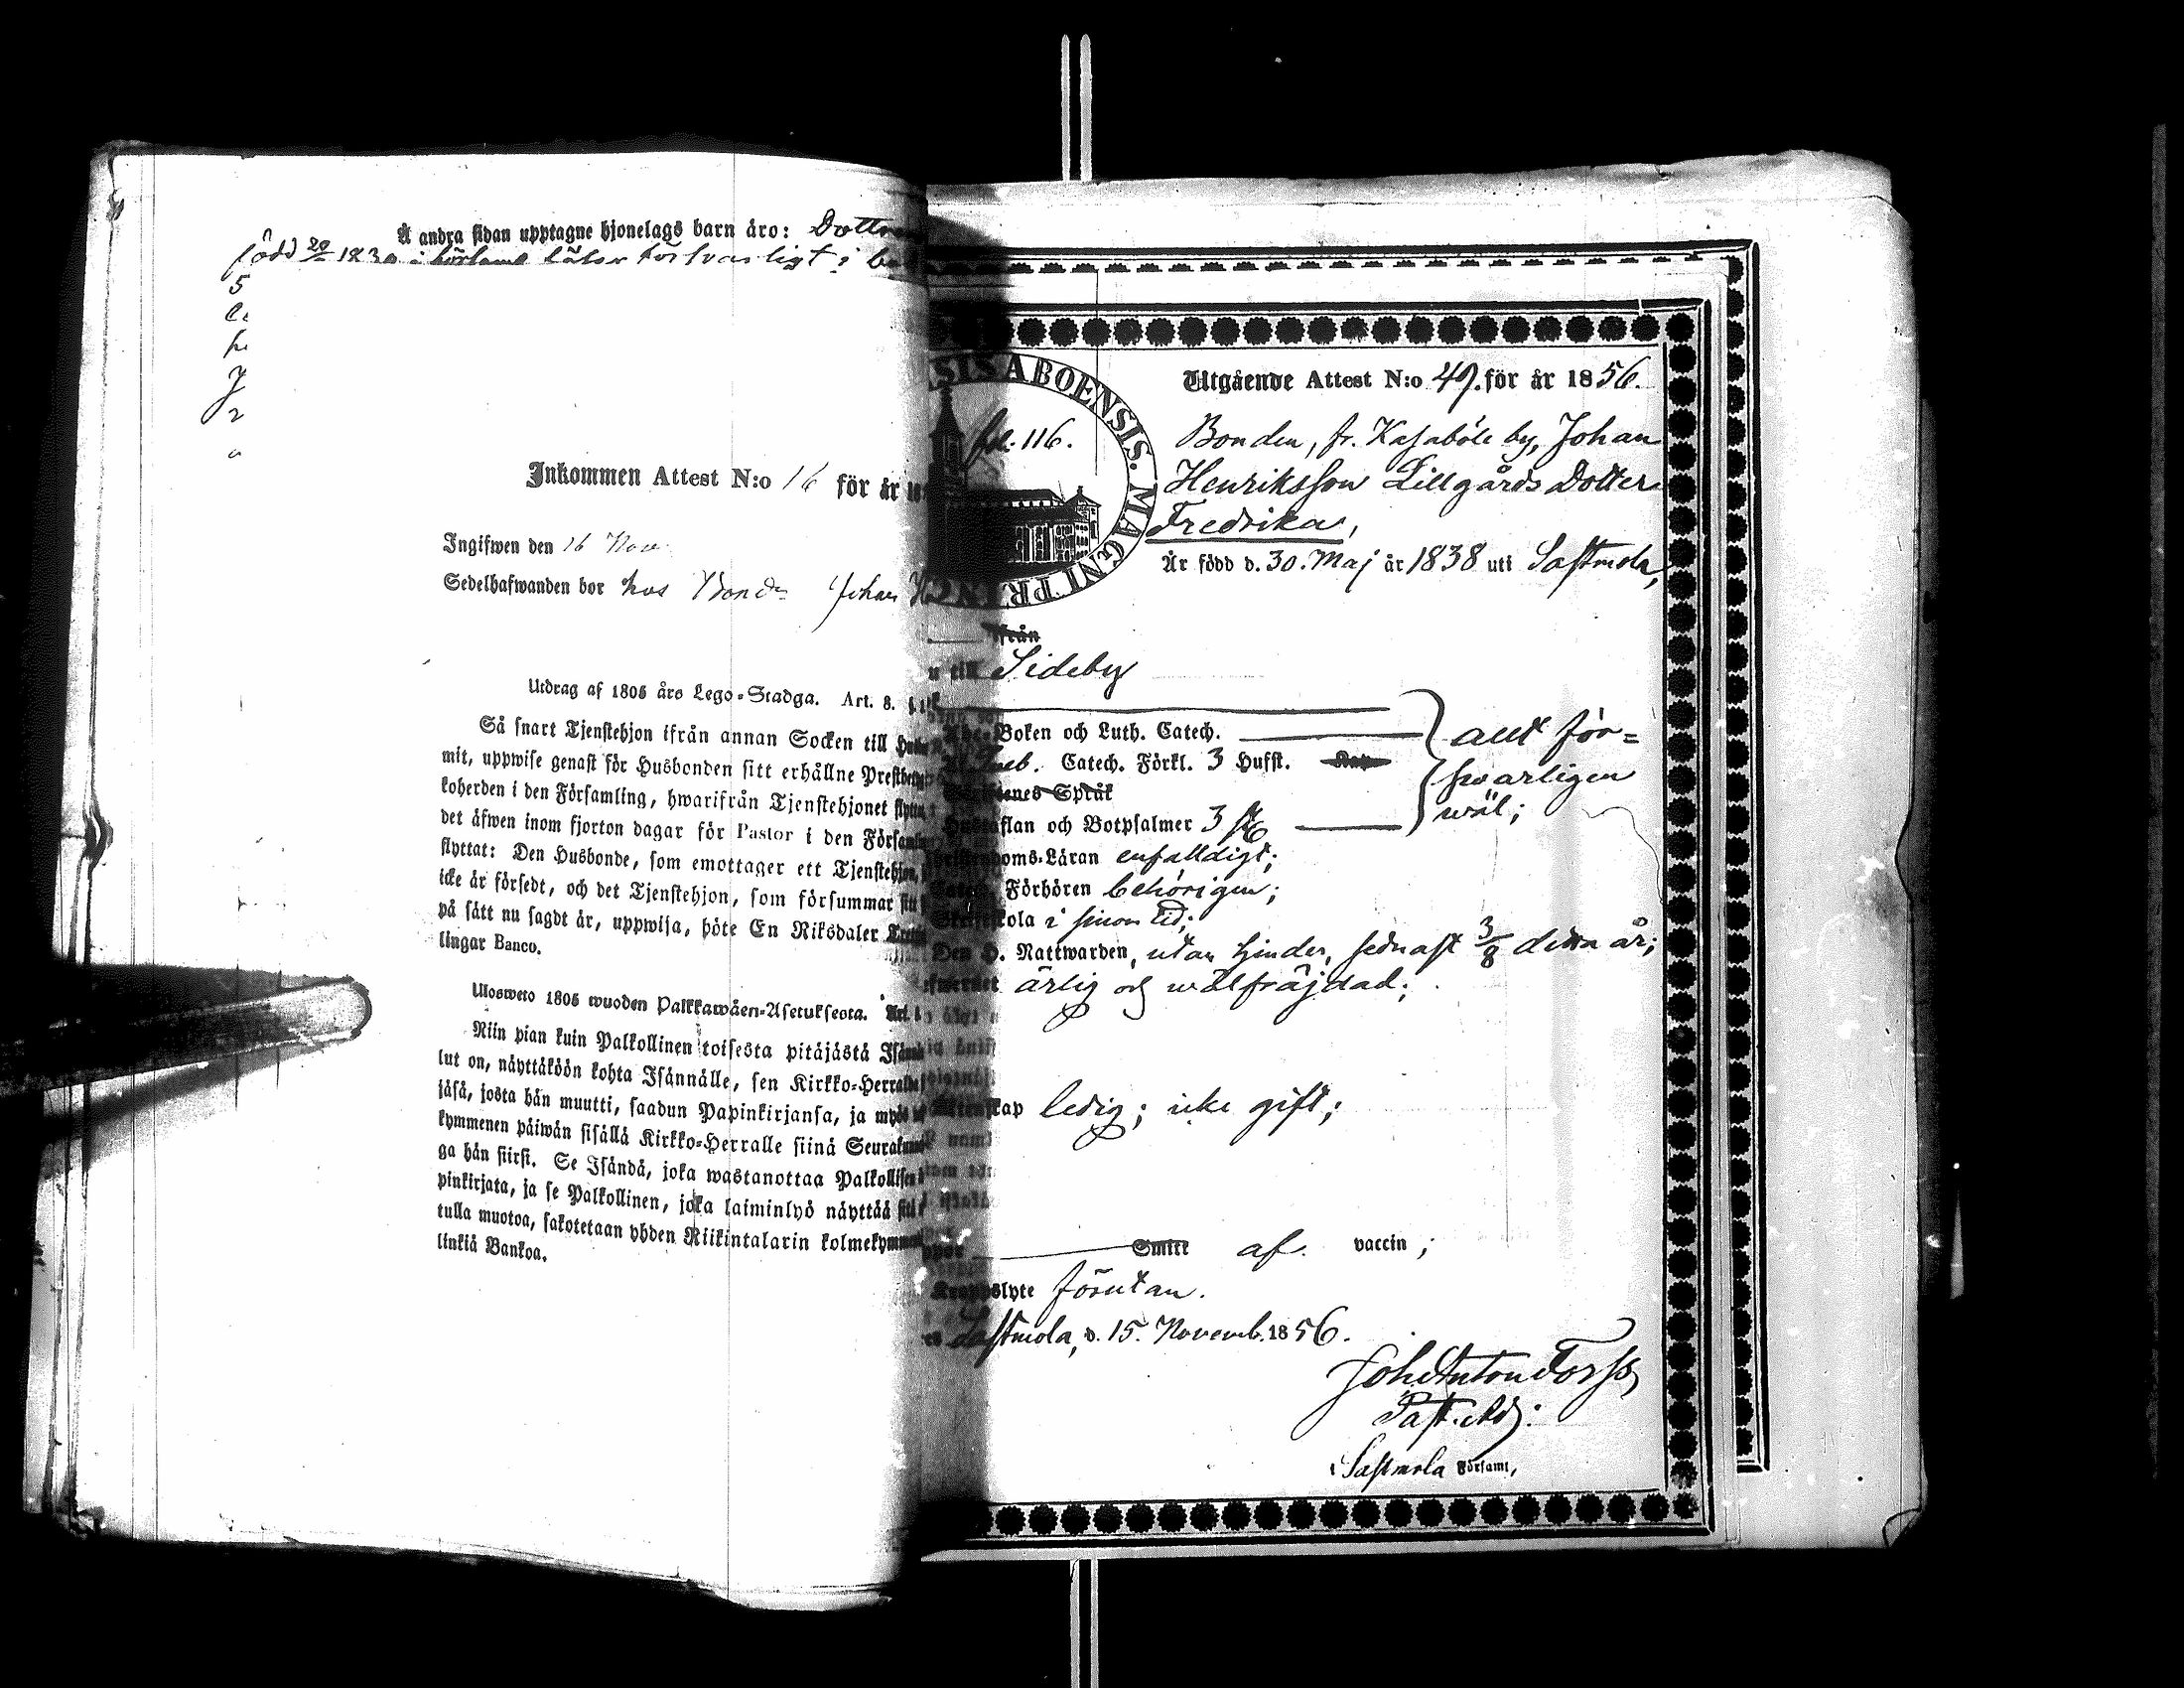 Å andra sidan upptagne hjonelags barn äro:
född 1830 förswarligt i
Inkommen Attest N:o 16 för år
Ingifwen den 16 Nov
Sedelhafwanden bor hos Bonden Johan
Utdrag af 1805 års Lego-Stadga. Art. 8.
Så snart Tjenstehjon ifrån annan Socken till
mit, uppwise genast för Husbonden sitt erhållne
koherden i den Församling, hwarifrån Tjenstehjonet
det äfwen inom fjorton dagar för Pastor i den
flyttat: Den Husbonde, som emottager ett
icke är försedt, och det Tjenstehjon, som försummar
på sätt nu sagdt är, uppwisa, böte En Riksdaler
lingar Banco.
Ulosweto 1805 wuoden Palkkawäen-Asetuksesta.
Niin pian kuin Palkollinen toisesta pitäjästä
lut on, näyttäköön kohta Isännälle, sen Kirkko-Herralle
jäsä, josta hän muutti, saadun Papinkirjansa, ja
kymmenen päiwän sisällä Kirkko-Herralle siinä
ga hän siirsi. Se Isändä, joka wastanottaa
pinkirjata, ja se Palkollinen, joka laiminlyö näyttää
tulla muotoa, sakotetaan yhden Riikintalarin
linkiä Bankoa.
ABOENSIS. MAGNI PRIN
fol. 116.
Utgående Attest N:o 49. för år 1856.
Bonden, fr. Kasaböle by, Johan
Henriksson Lillgårds Dotter
Fredrika,
Är född d. 30. Maj år 1838 uti Sastmola,
ifrån
till Sideby
Boken och Luth. Catech.
Catech. Förkl. 3 Hufst.
Språk
Hustaflan och Botpsalmer 3
allt för=
swarligen
wäl;
Christendoms-Läran enfaldigt;
Catech. Förhören behörigen;
Skriftskola i sinom tid;
Den H. Nattwarden, utan hinder, sednast 3/8 detta år;
ärlig och wälfräjdad;
ledig; icke gift;
Smitt af vaccin;
Kroppslyte förutan.
Sastmola, d. 15. Novemb. 1856.
Joh Anton
Past. Adj:
i Sastmola Församl,